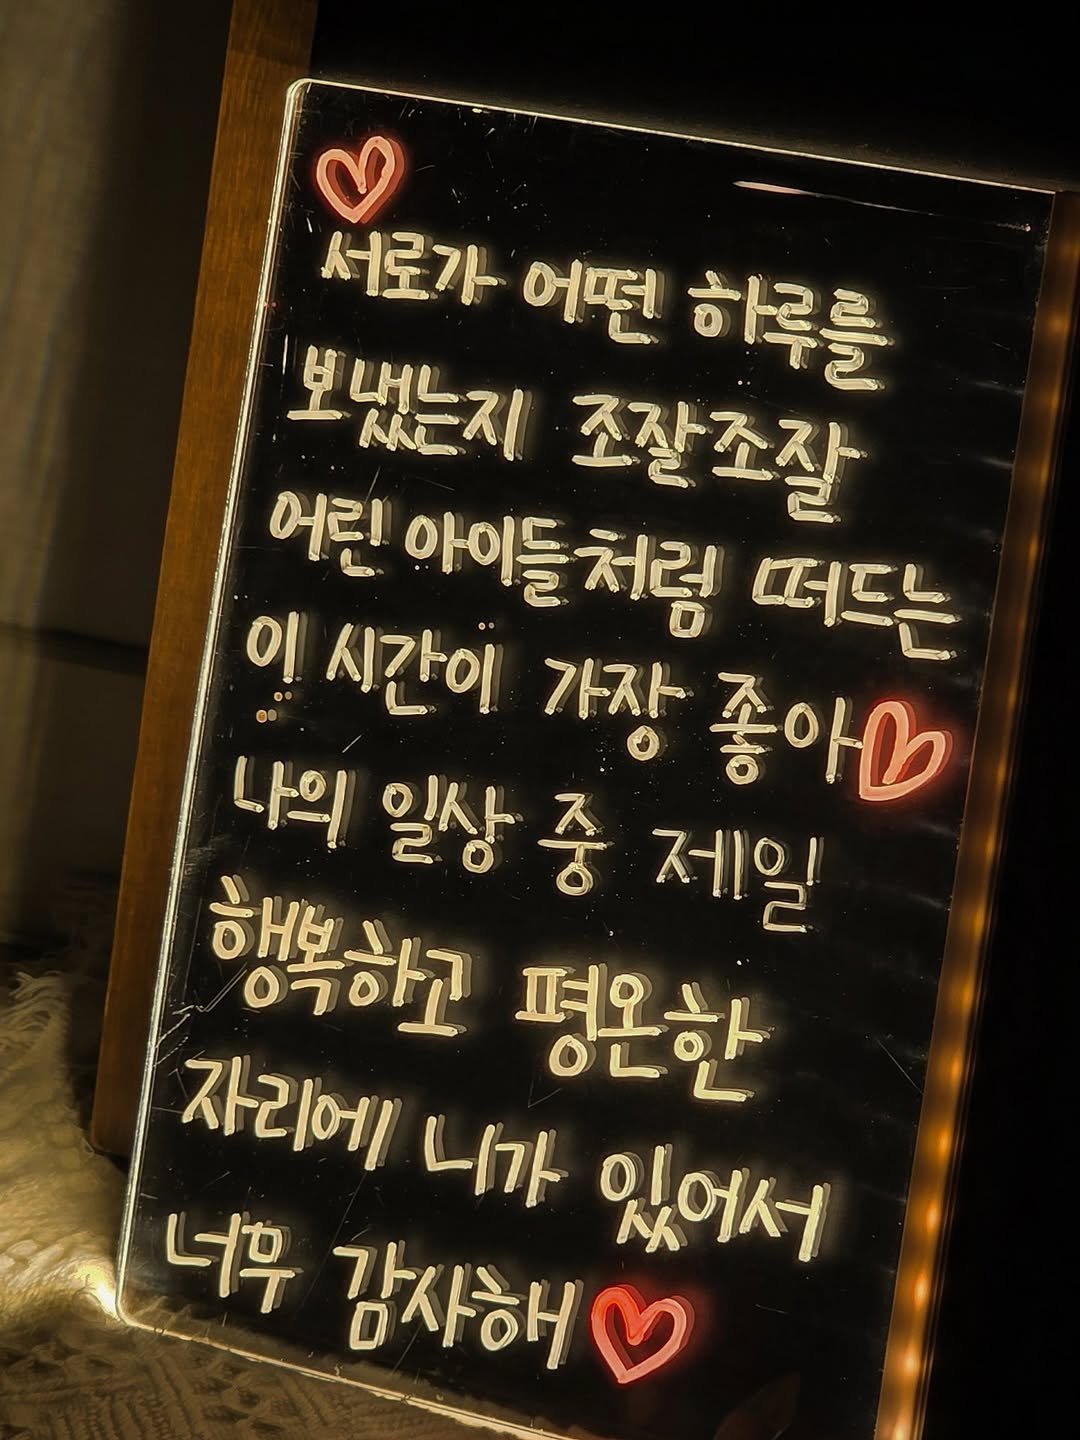 서로가 어떤 하루를
보냈는지 조잘조잘
어린 아이들처럼 떠드는
이 시간이 가장 좋아
나의 일상 중 제일
행복하고 평온한
자리에 니가 있어서
너무 감사해